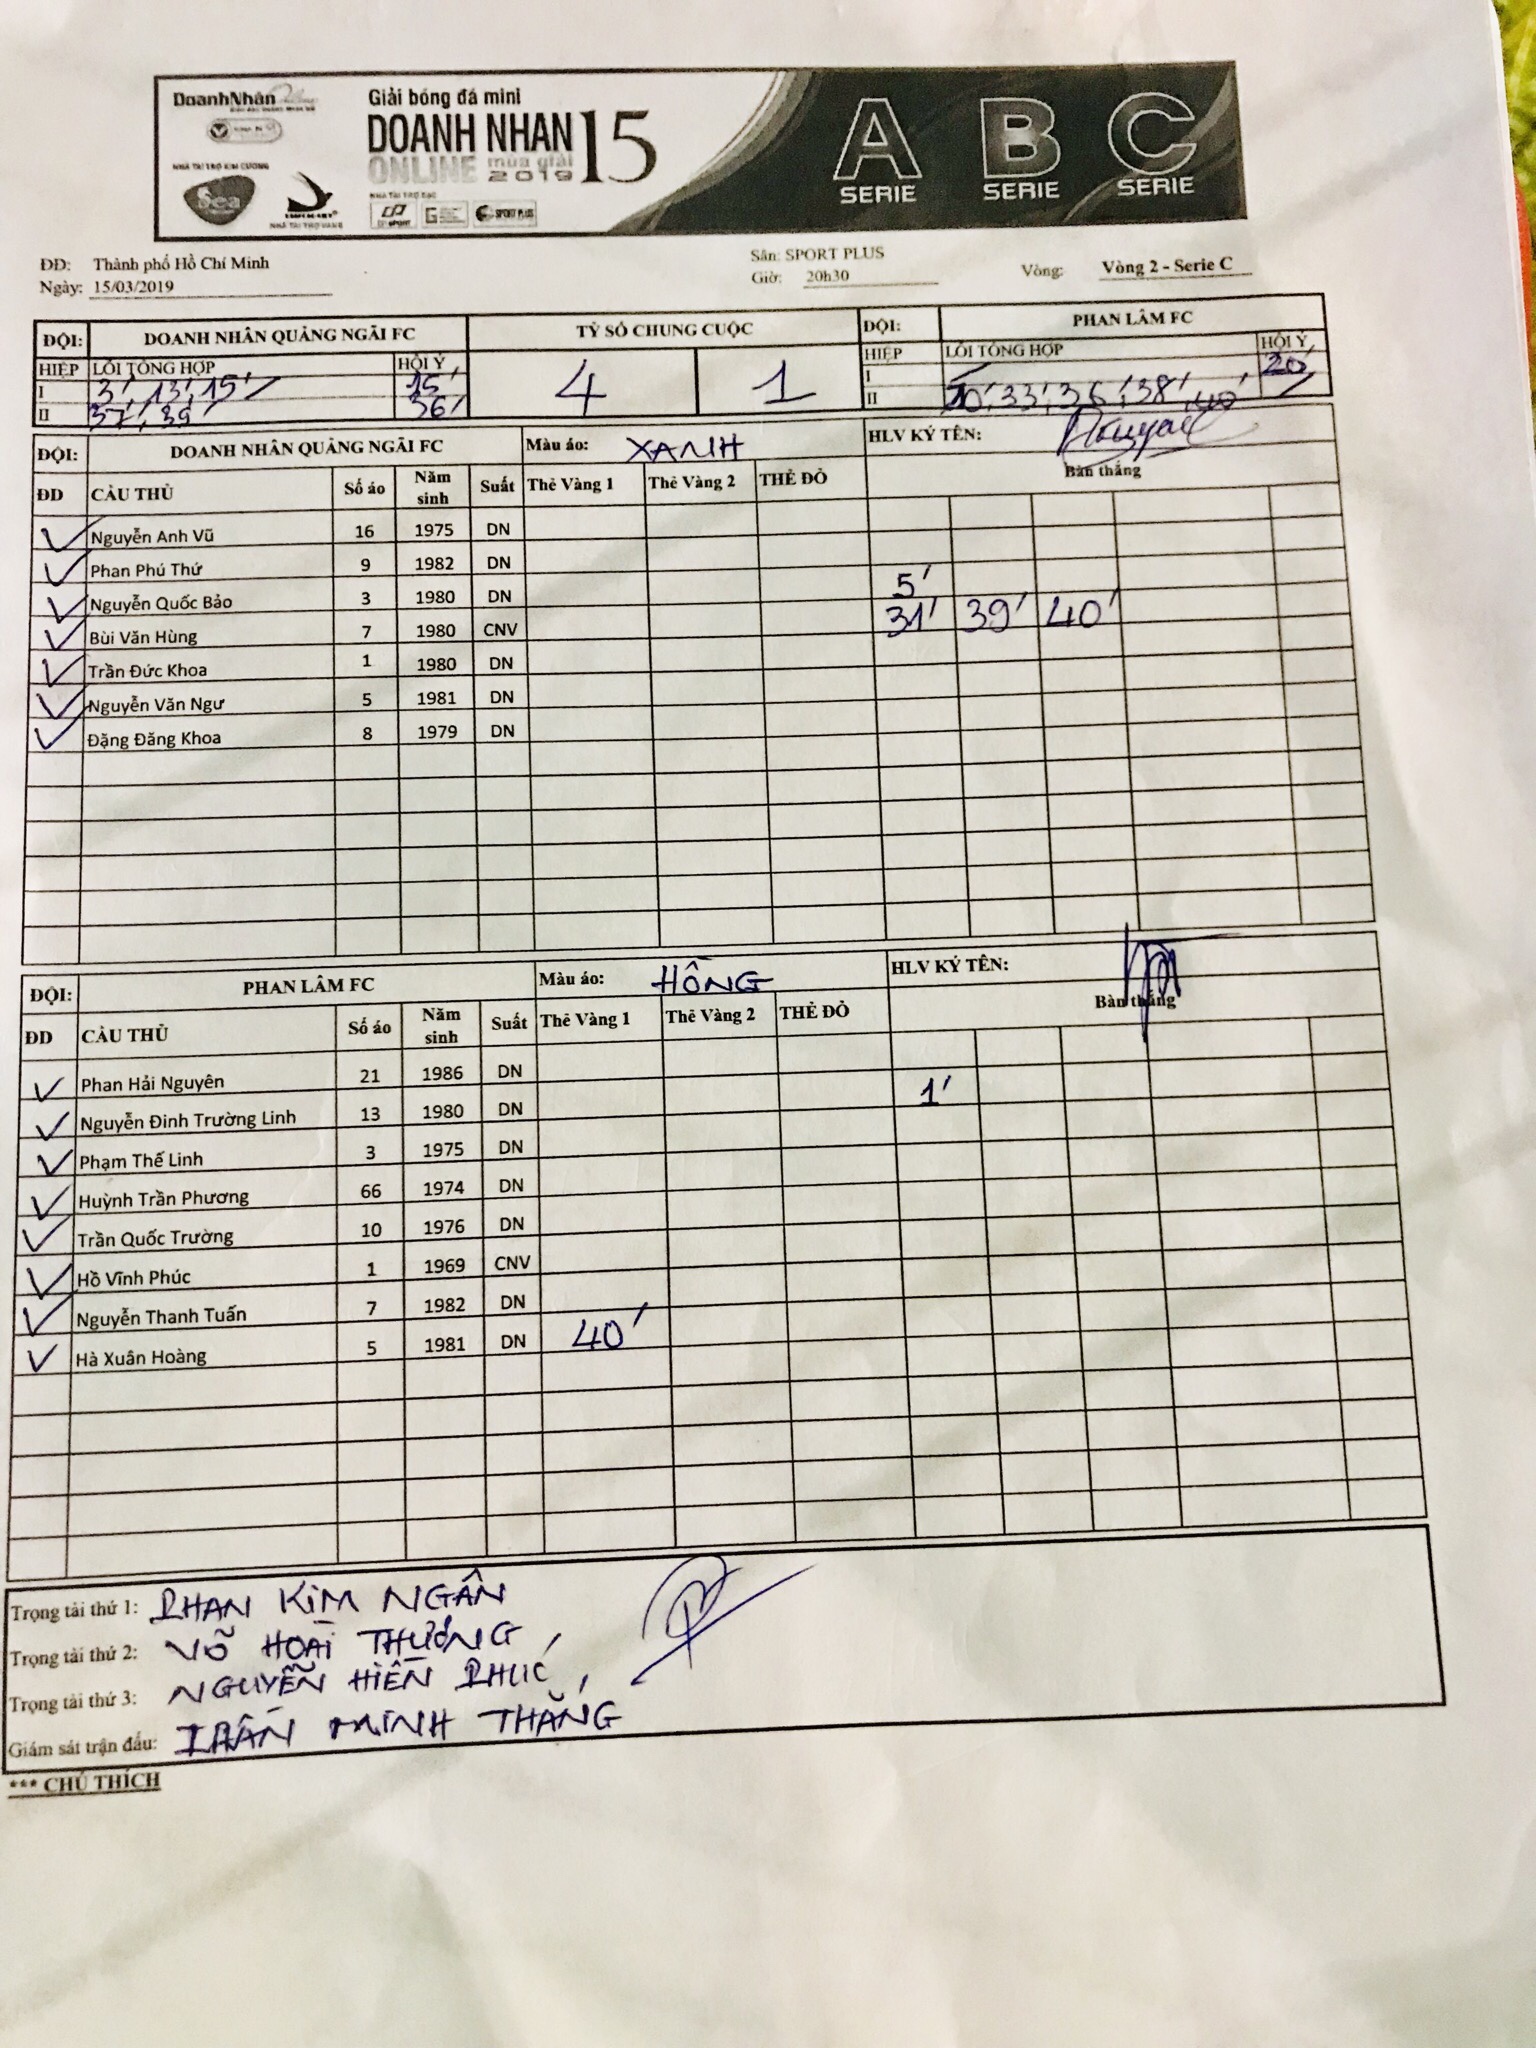 DoanhNhân Online
NHÀ TÀI TRỢ KIM CƯƠNG
Sea
NHÀ TÀI TRỢ VÀNG
Giải bóng đá mini
DOANH NHAN 15
ONLINE mùa giải 2019
NHÀ TÀI TRỢ BẠC
SPORT PLUS
A SERIE B SERIE C SERIE
ĐĐ: Thành phố Hồ Chí Minh Sân: SPORT PLUS
Ngày: 15/03/2019 Giờ: 20h30 Vòng: Vòng 2 - Serie C
ĐỘI: DOANH NHÂN QUẢNG NGÃI FC TỶ SỐ CHUNG CUỘC ĐỘI: PHAN LÂM FC
HIỆP LỖI TỔNG HỢP HỘI Ý 4 1 HIỆP LỖI TỔNG HỢP HỘI Ý
I 3', 13', 15' 15' I 20'
II 37', 39' 36' II 33', 36', 38', 40'
ĐỘI: DOANH NHÂN QUẢNG NGÃI FC Màu áo: XANH HLV KÝ TÊN:
ĐD CẦU THỦ Số áo Năm sinh Suất Thẻ Vàng 1 Thẻ Vàng 2 THẺ ĐỎ Bàn thắng
Nguyễn Anh Vũ 16 1975 DN
Phan Phú Thứ 9 1982 DN
Nguyễn Quốc Bảo 3 1980 DN 5'
Bùi Văn Hùng 7 1980 CNV 31' 39' 40'
Trần Đức Khoa 1 1980 DN
Nguyễn Văn Ngư 5 1981 DN
Đặng Đăng Khoa 8 1979 DN
ĐỘI: PHAN LÂM FC Màu áo: HỒNG HLV KÝ TÊN:
ĐD CẦU THỦ Số áo Năm sinh Suất Thẻ Vàng 1 Thẻ Vàng 2 THẺ ĐỎ Bàn thắng
Phan Hải Nguyên 21 1986 DN
Nguyễn Đinh Trường Linh 13 1980 DN 1'
Phạm Thế Linh 3 1975 DN
Huỳnh Trần Phương 66 1974 DN
Trần Quốc Trường 10 1976 DN
Hồ Vĩnh Phúc 1 1969 CNV
Nguyễn Thanh Tuấn 7 1982 DN
Hà Xuân Hoàng 5 1981 DN 40'
Trọng tài thứ 1: PHAN KIM NGÂN
Trọng tài thứ 2: VÕ HOÀI THƯƠNG
Trọng tài thứ 3: NGUYỄN HIỀN PHÚC
Giám sát trận đấu: TRẦN MINH THẮNG
*** CHÚ THÍCH